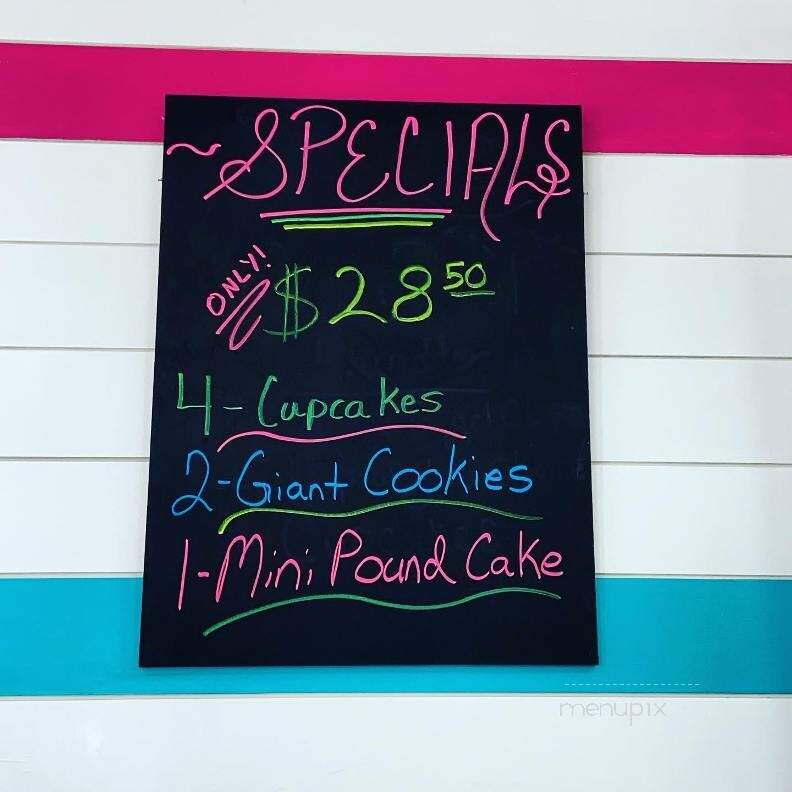 ~SPECIALS
ONLY! $28 50
4-Cupcakes
2-Giant Cookies
1-Mini Pound Cake
menupix